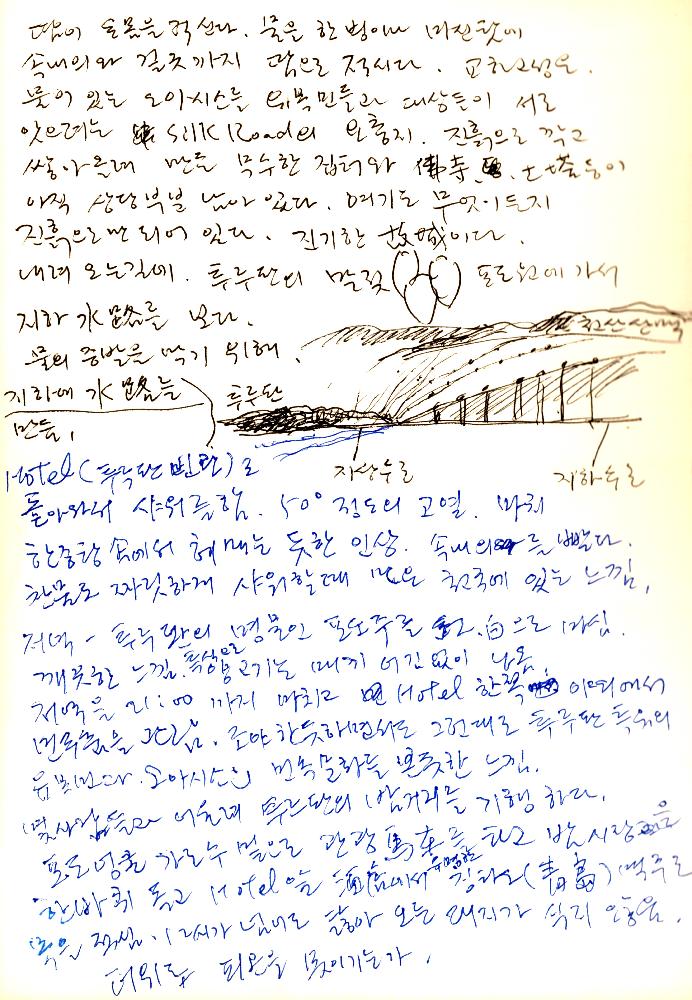 땀이 온몸을 적신다. 물을 한 병이나 마신탓에
속내의와 겉옷까지 땀으로 적시다. 교하고성은.
물이 있는 오아시스를 유목민들과 대상들이 서로
앗으려는 Silk Road의 요충지. 진흙으로 깍고
쌓아올려 만든 무수한 집터와 佛寺, 土塔등이
아직 상당부분 남아 있다. 여기도 무엇이든지
진흙으로만 되어 있다. 진기한 故城이다.
내려 오는길에. 투루판의 포도원에 가서
지하 水路를 보다.
물의 증발을 막기 위해.
천산산맥
지하에 水路를
투루판
만듬,
지상수로
지하수로
Hotel(투루판)로
돌아와서 샤워를함. 50° 정도의 고열. 마치
한증탕 속에서 헤매는 듯한 인상. 속내의를 빨다.
찬물로 짜릿하게 샤워할때 만은 천국에 있는 느낌,
저녁 - 투루판의 명물인 포도주를 紅.白으로 마심.
깨끗한 느낌. 특식으로 양고기는 매끼 어김없이 나옴.
저녁을 21:00 까지 마치고 Hotel 한쪽 에서
민속춤을 관람. 조야한듯하면서도 그런대로 투루판 특유의
유목민과 오아시스의 민속문화를 본듯한 느낌.
몇사람들과 어울려 투루판의 밤거리를 기행 하다.
포도넝쿨 가로수 밑으로 관광馬車를 타고 밤시장을
한바퀴 돌고 Hotel옆 酒店에서 유명한 칭따오(靑島)맥주로
목을 적심. 12시가 넘어도 닳아 오는 대지가 식지 않음.
더위로 피곤을 못이기는가.